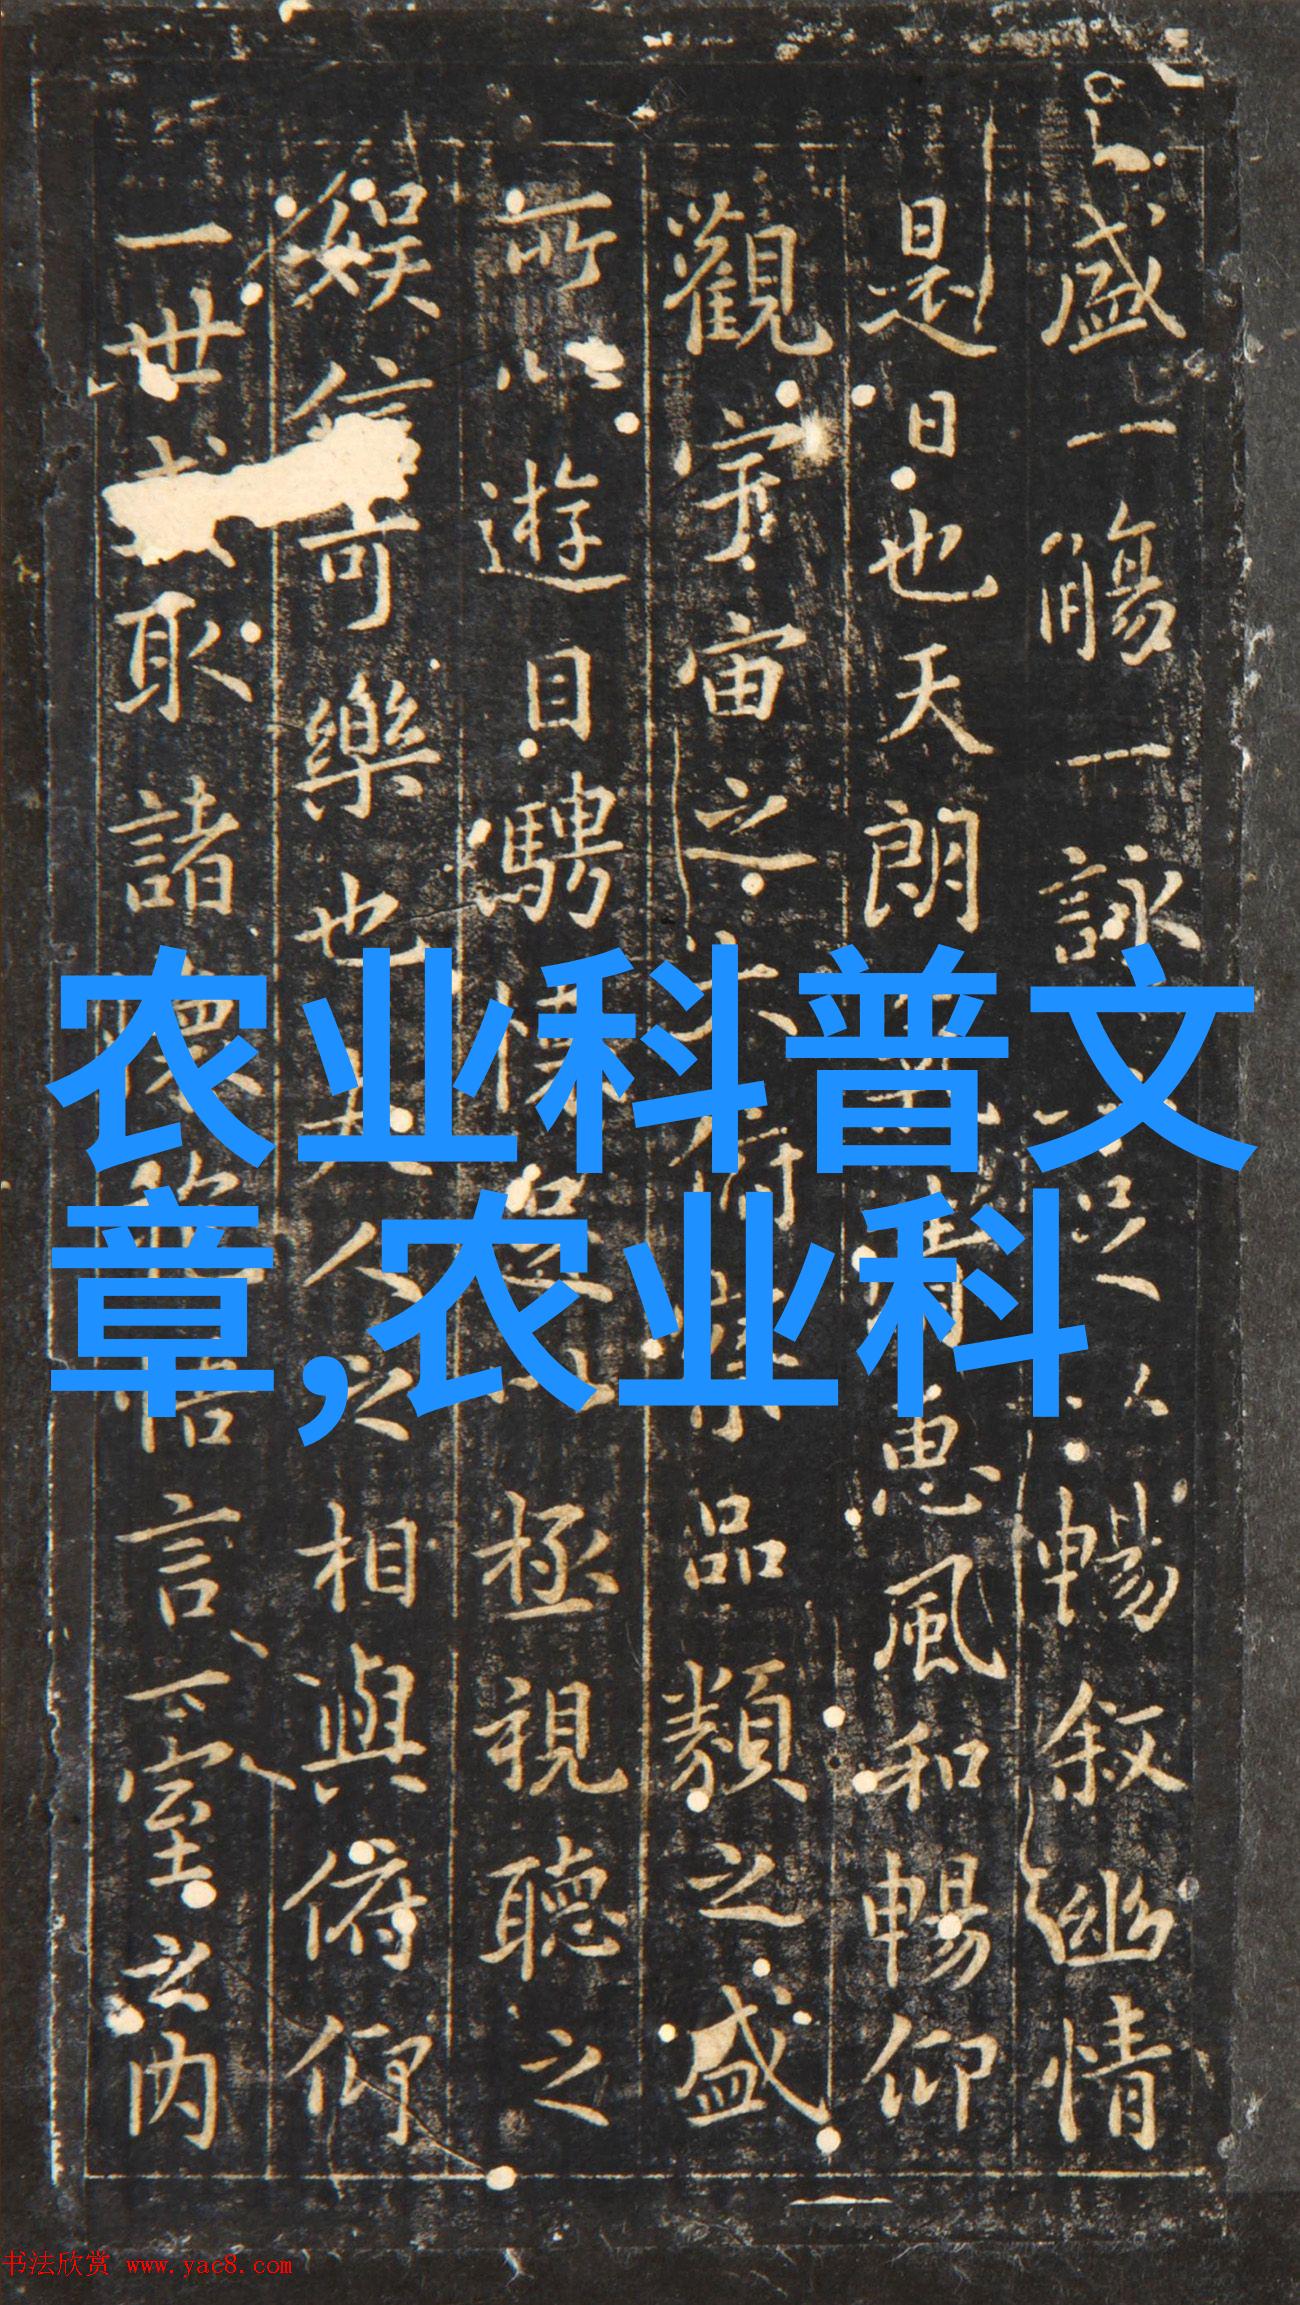 盛一觴一詠足以暢叙幽情
是日也天朗氣清惠風和暢仰
觀宇宙之大俯察品類之盛
所以遊目騁懷足以極視聽之
娛信可樂也夫人之相與俯仰
一世取諸懷抱悟言一室之内
农业科普文
章,农业科
书法欣赏 www.yac8.com